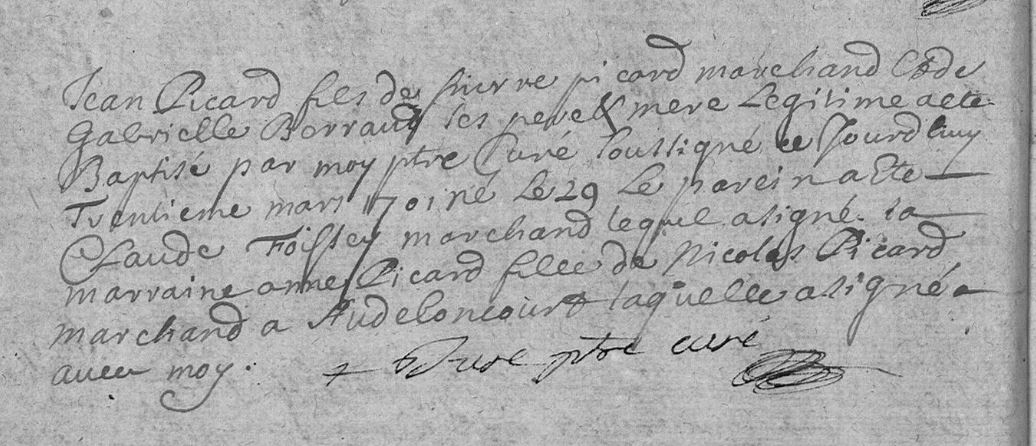 Jean Picard fils de pierre picard marchand Et de
Gabrielle Borraud ses pere & mere Legitime a ete
Baptisé par moy ptre Curé soussigné ce Jourdhuy
Trentieme mars 1701 né Le 29 Le parein a Ete
Claude Foissey marchand lequel a signé. la
marraine anne Picard fille de Nicolas Picard
marchand a Audeloncourt laquelle a signé
avec moy. ptre curé